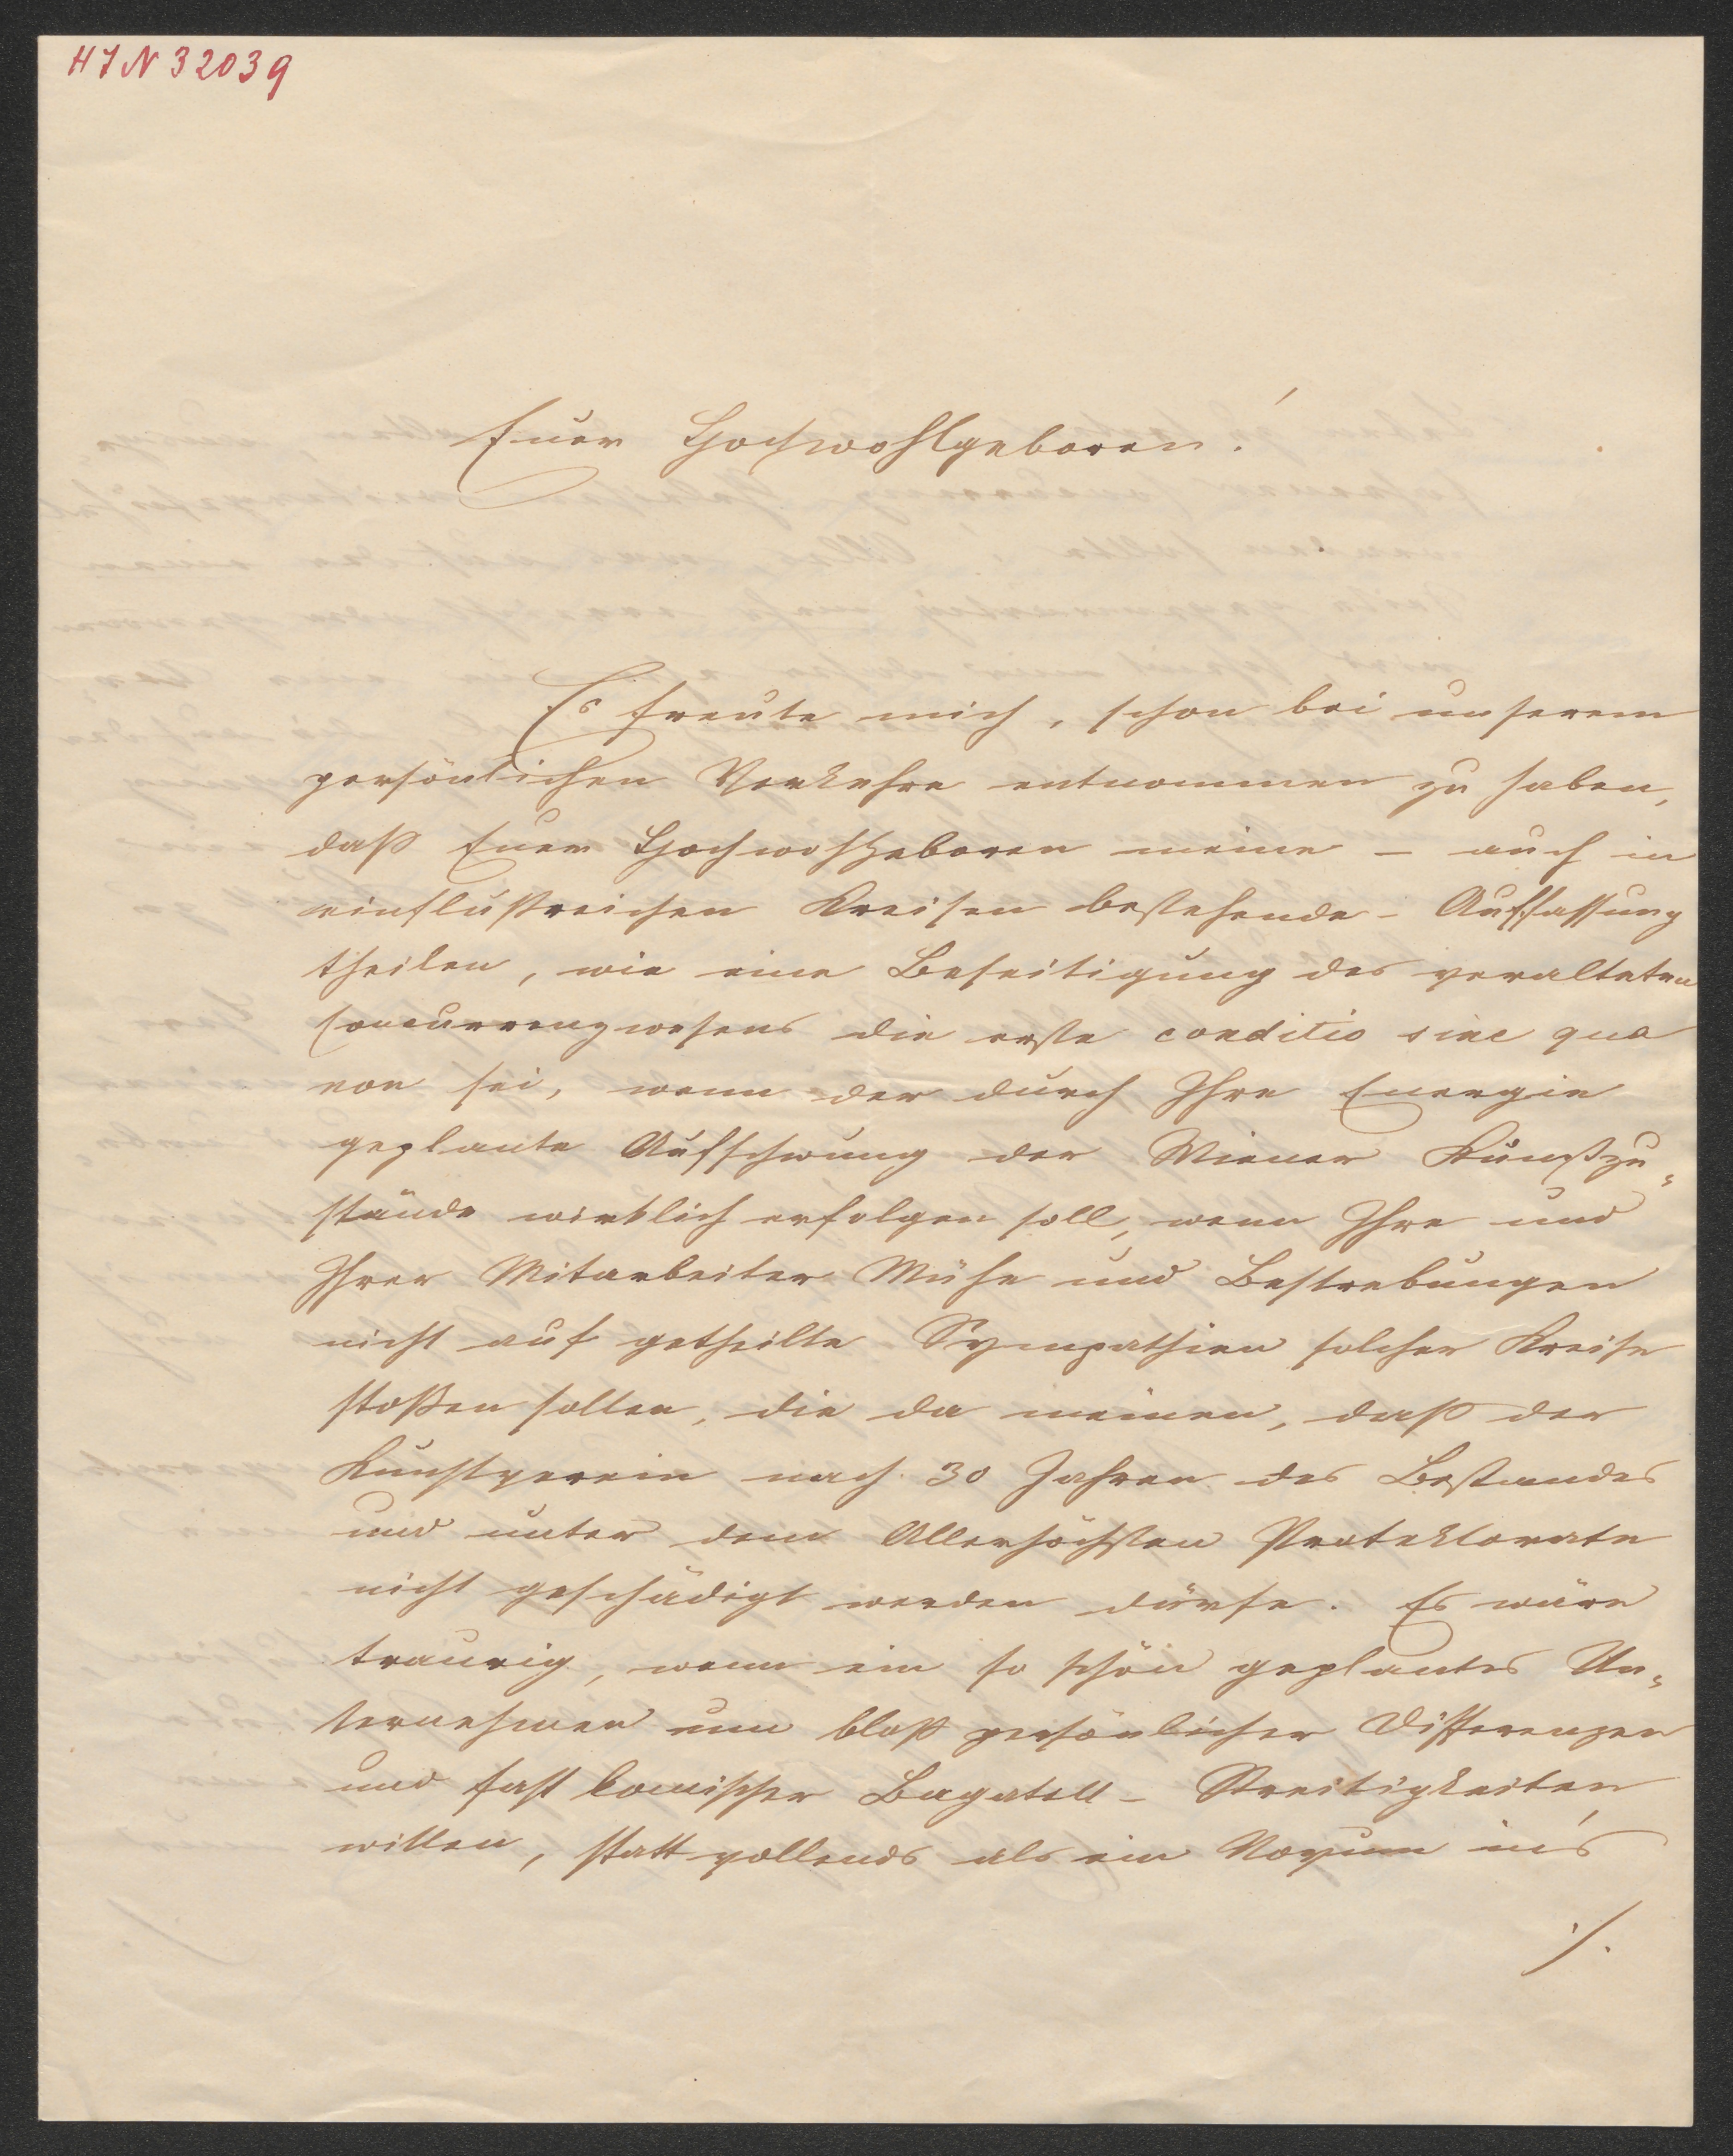 HIN 32039
Euer Hochwohlgeboren!
Es freute mich, schon bei unserem
persönlichen Verkehre entnommen zu haben,
daß Euer Hochwohlgeboren meine – auch in
einflußreichen Kreisen bestehende – Auffassung
theilen, wie eine Beseitigung des veralteten
Concurrenzwesens die erste conditio sine qua
non sei, wenn der durch Ihre Energie
geplante Aufschwung der Wiener Kunstzu-
stände wirklich erfolgen soll, wenn Ihre und
Ihrer Mitarbeiter Mühe und Bestrebungen
nicht auf getheilte Sympathien solcher Kreise
stoßen sollen, die da meinen, daß der
Kunstverein nach 30 Jahren des Bestandes
und unter dem Allerhöchsten Protektorate
nicht geschädigt werden dürfe. Es wäre
traurig, wenn ein so schön geplantes Un-
ternehmen um bloß persönlicher Differenzen
und fast komischer Bagatell-Streitigkeiten
willen, statt vollends als ein Novum in's
./.